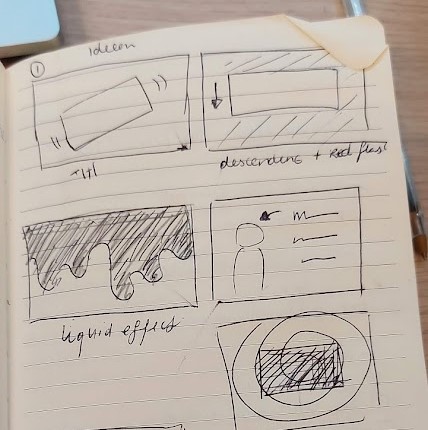 ideeen
①
Tilt
descending + red flash
liquid effect